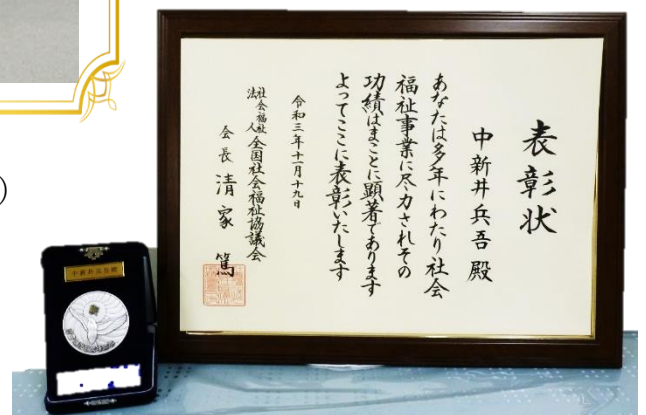 表彰状
中新井兵吾殿
あなたは多年にわたり社会
福祉事業に尽力されその
功績はまことに顕著であります
よってここに表彰いたします
令和三年十一月十九日
社会福祉法人 全国社会福祉協議会
会長 清家 篤